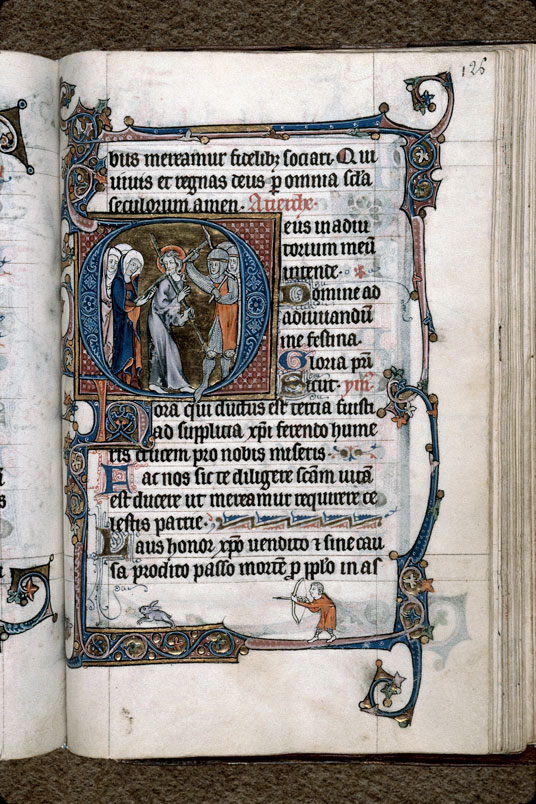 126
bus mereamur fidelibȝ sociari. Qui
uiuis et regnas deus ꝑ omnia scła
seculorum amen. A tierche.
Deus in adiu
torium meū
intende.
Domine ad
adiuuandū
me festina.
Gloria pr̄i
Sicut. ym̄.
Hora qui ductus est tertia fuisti
ad supplicia xp̄i ferendo hume
ris crucem pro nobis miseris.
Fac nos sic te diligere sc̄am uitā
est ducere ut mereamur requirere ce
lestis patrie.
Laus honor xp̄o uendito ⁊ sine cau
sa prodito passo mortē ꝓ ip̄lo in as